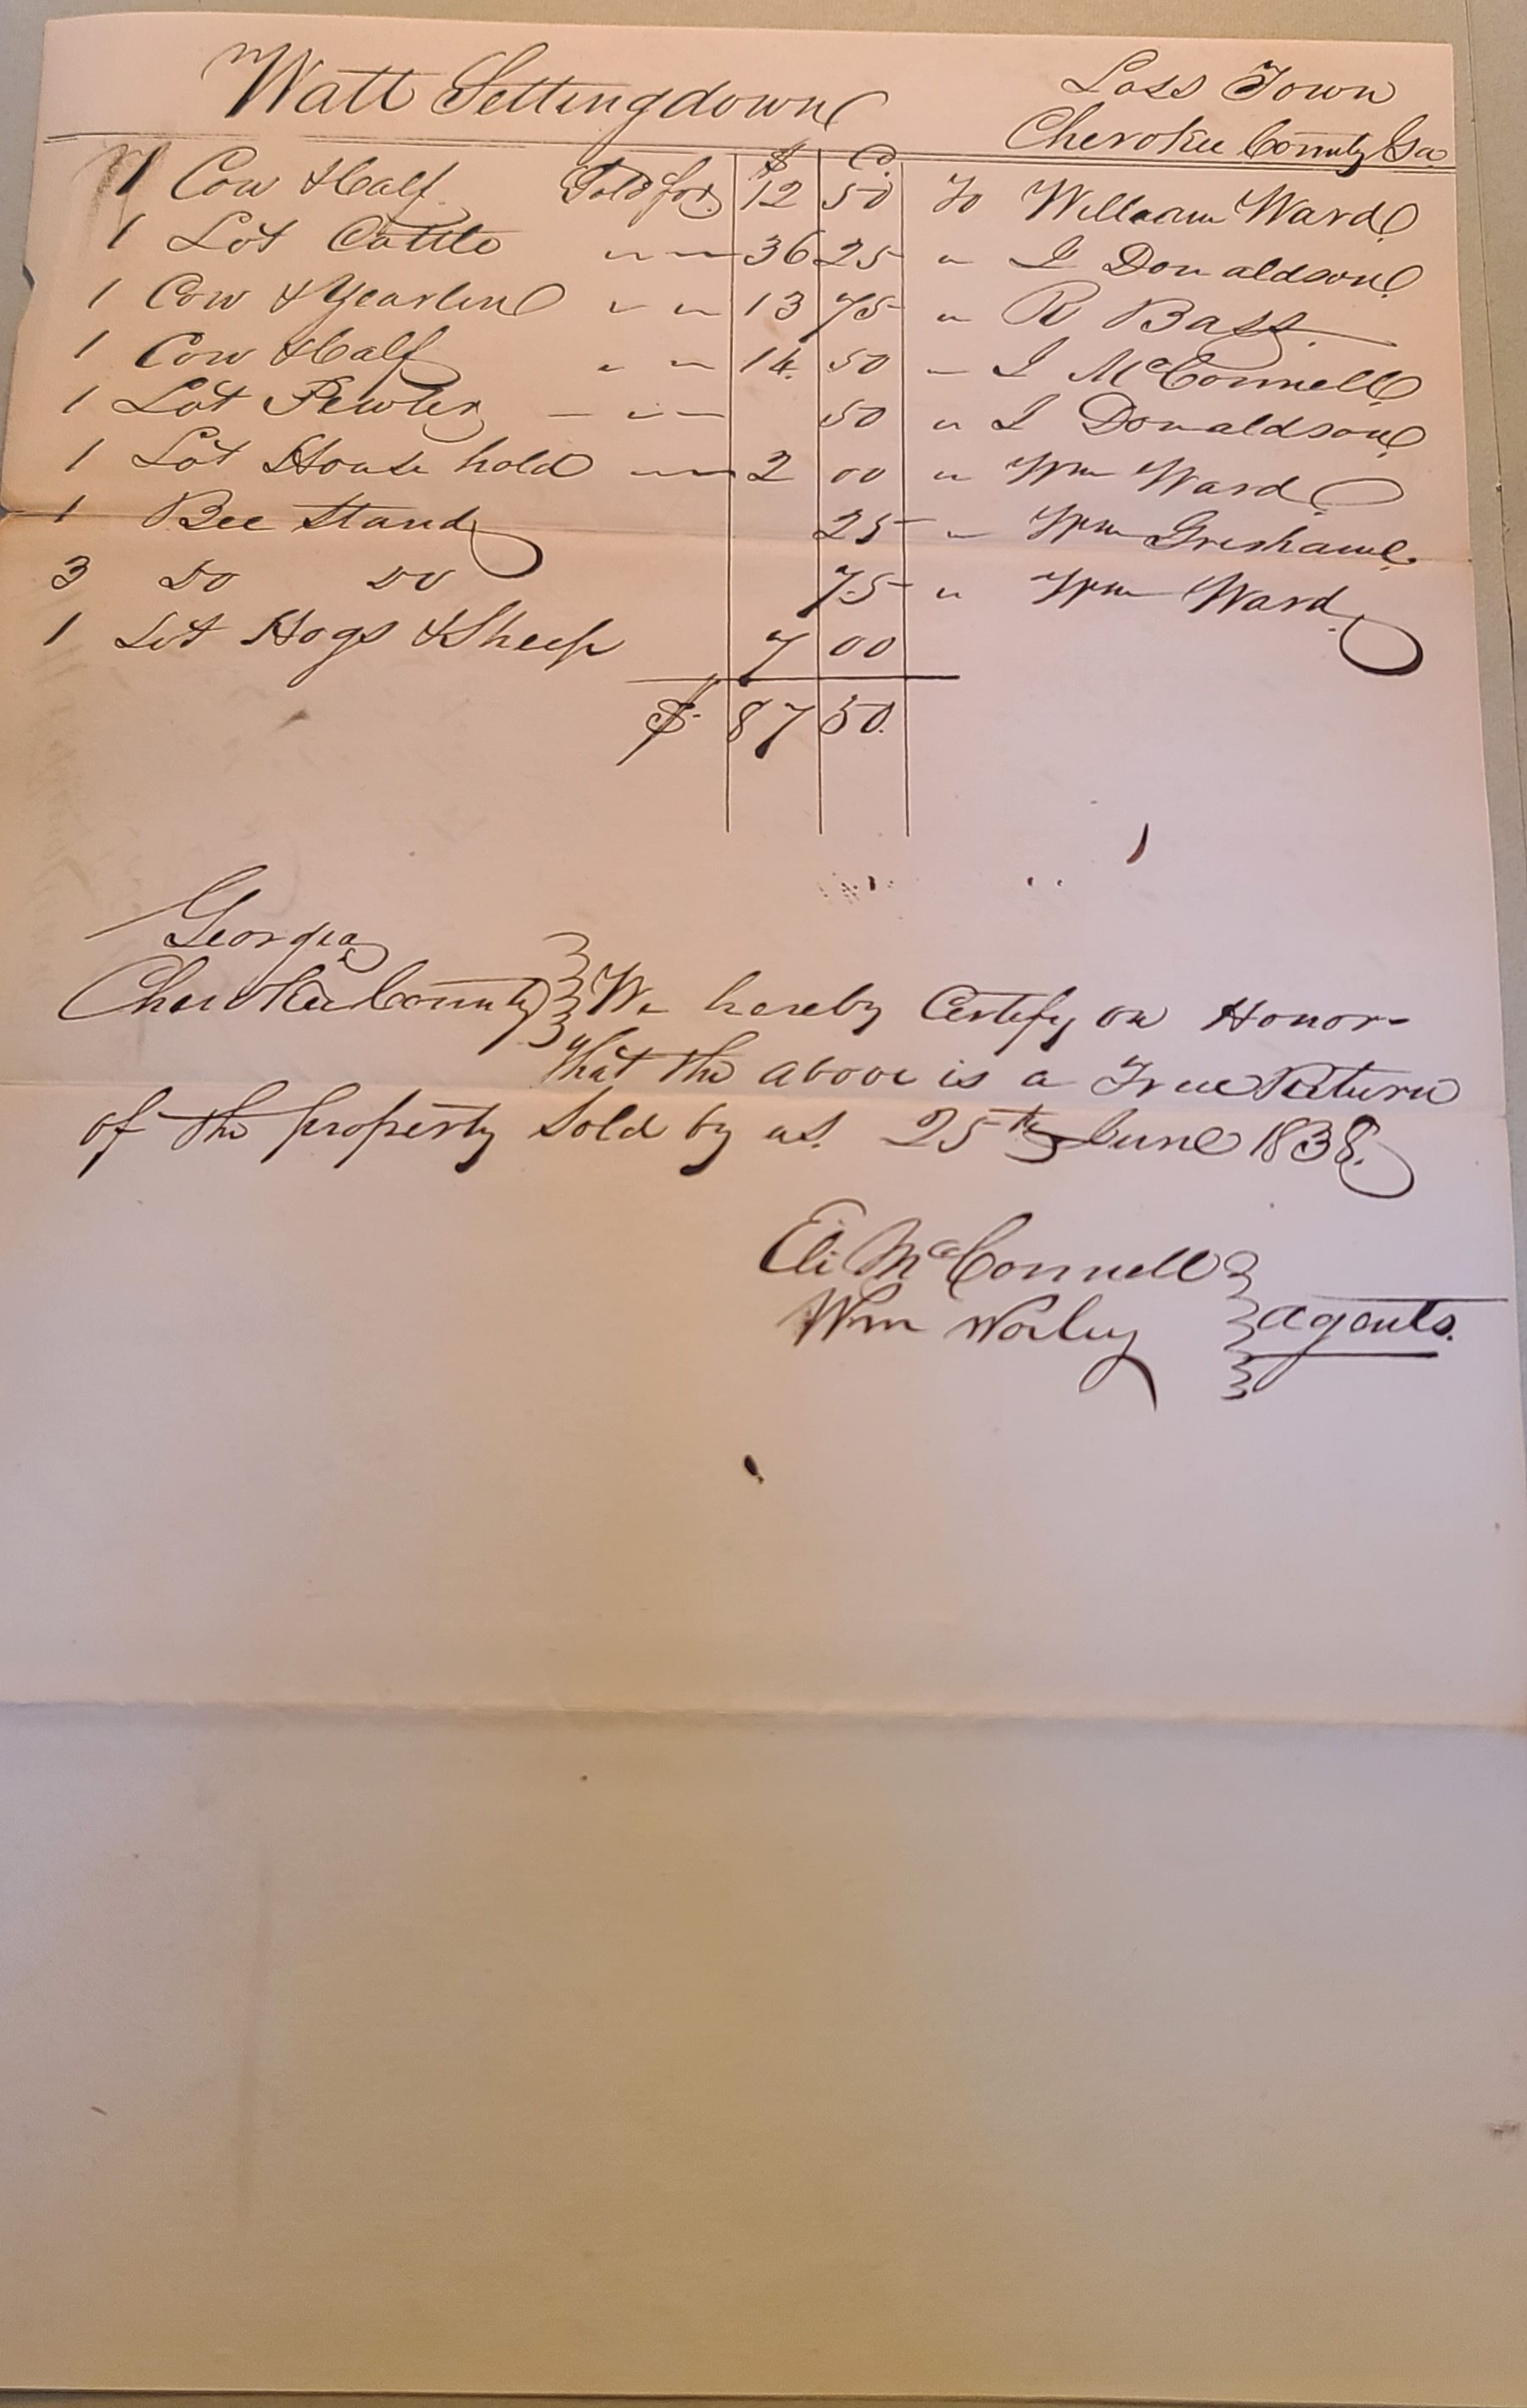 Watt Settingdown
Loss Town
Cherokee County Ga
$ C.
1 Cow & Calf Sold for 12 50 To William Ward
1 Lot Cattle " " 36 25 " J Donaldson
1 Cow & Yearlin " " 13 75 " R Bass
1 Cow & Calf " " 14 50 " J McConnell
1 Lot Pewter " " 50 " J Donaldson
1 Lot House hold " " 2 00 " Wm Ward
1 Bee Stand 25 " Wm Grisham
3 Do Do 75 " Wm Ward
1 Lot Hogs & Sheep 7 00
$ 87 50
Georgia
Cherokee County } We hereby Certify on Honor
that the above is a True Return
of the property Sold by us. 25th June 1838.
Eli McConnell
Wm Worley } agents.